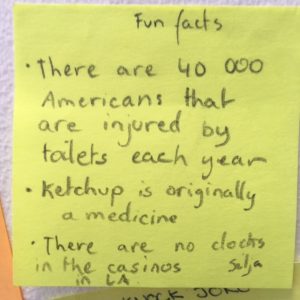 Fun facts
• There are 40 000
Americans that
are injured by
toilets each year
• Ketchup is originally
a medicine
• There are no clocks
in the casinos
in LA.